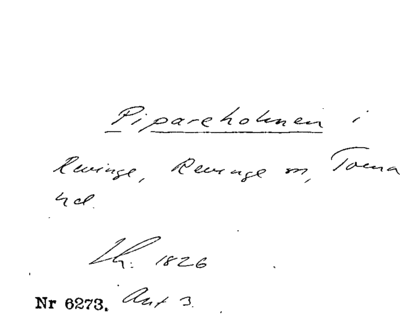 Pipareholmen i
Revinge, Revinge sn, Torna
hd.
Lh: 1826
Nr 6273. Akt 3.